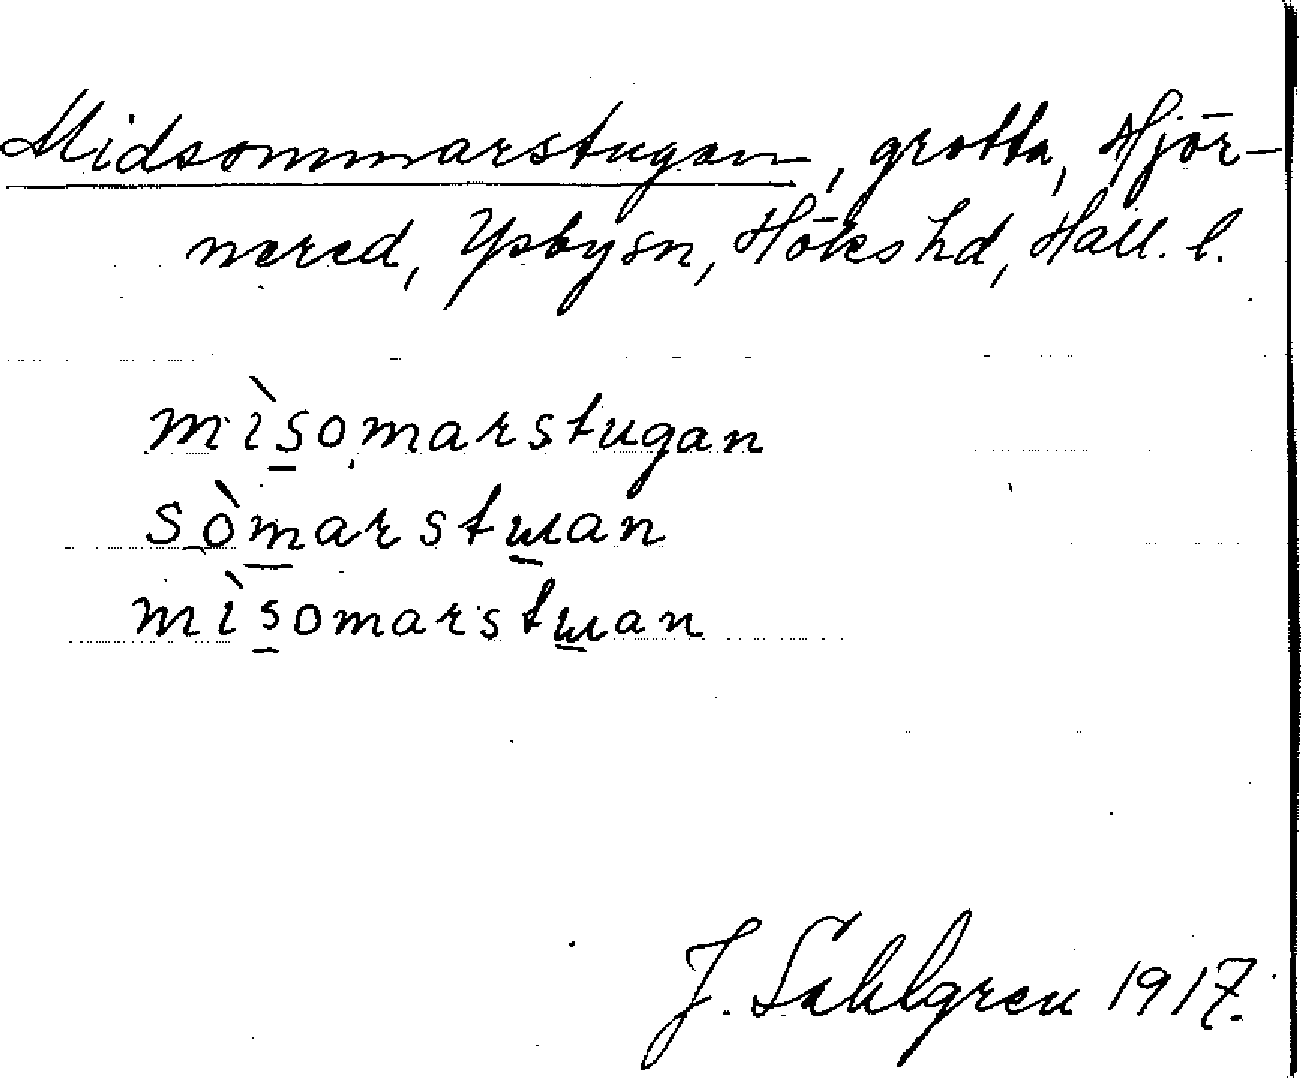 Midsommarstugan, grotta, Hjör-
nered, Ysbysn, Höks hd, Hall. l.
mìsomarstugan
sòmarstɯan
mìsomarstɯan
J. Sahlgren 1917.